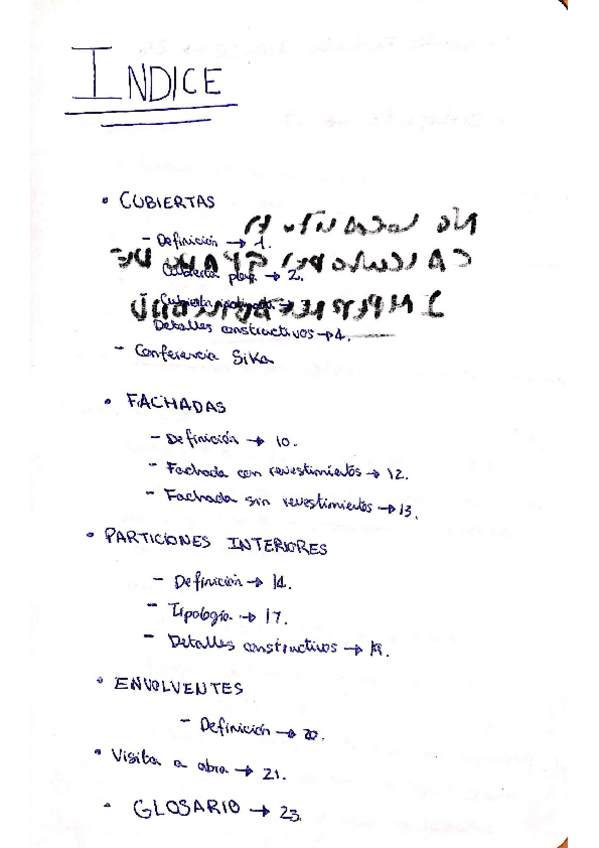 INDICE
• CUBIERTAS
- Definición → 1.
Cubierta → 2.
Cubierta
Detalles constructivos → 4.
- Conferencia Sika
• FACHADAS
- Definición → 10.
- Fachada con revestimientos → 12.
- Fachada sin revestimientos → 13.
• PARTICIONES INTERIORES
- Definición → 14.
- Tipología → 17.
- Detalles constructivos →
• ENVOLVENTES
- Definición → 20.
• Visita a obra → 21.
• GLOSARIO → 23.